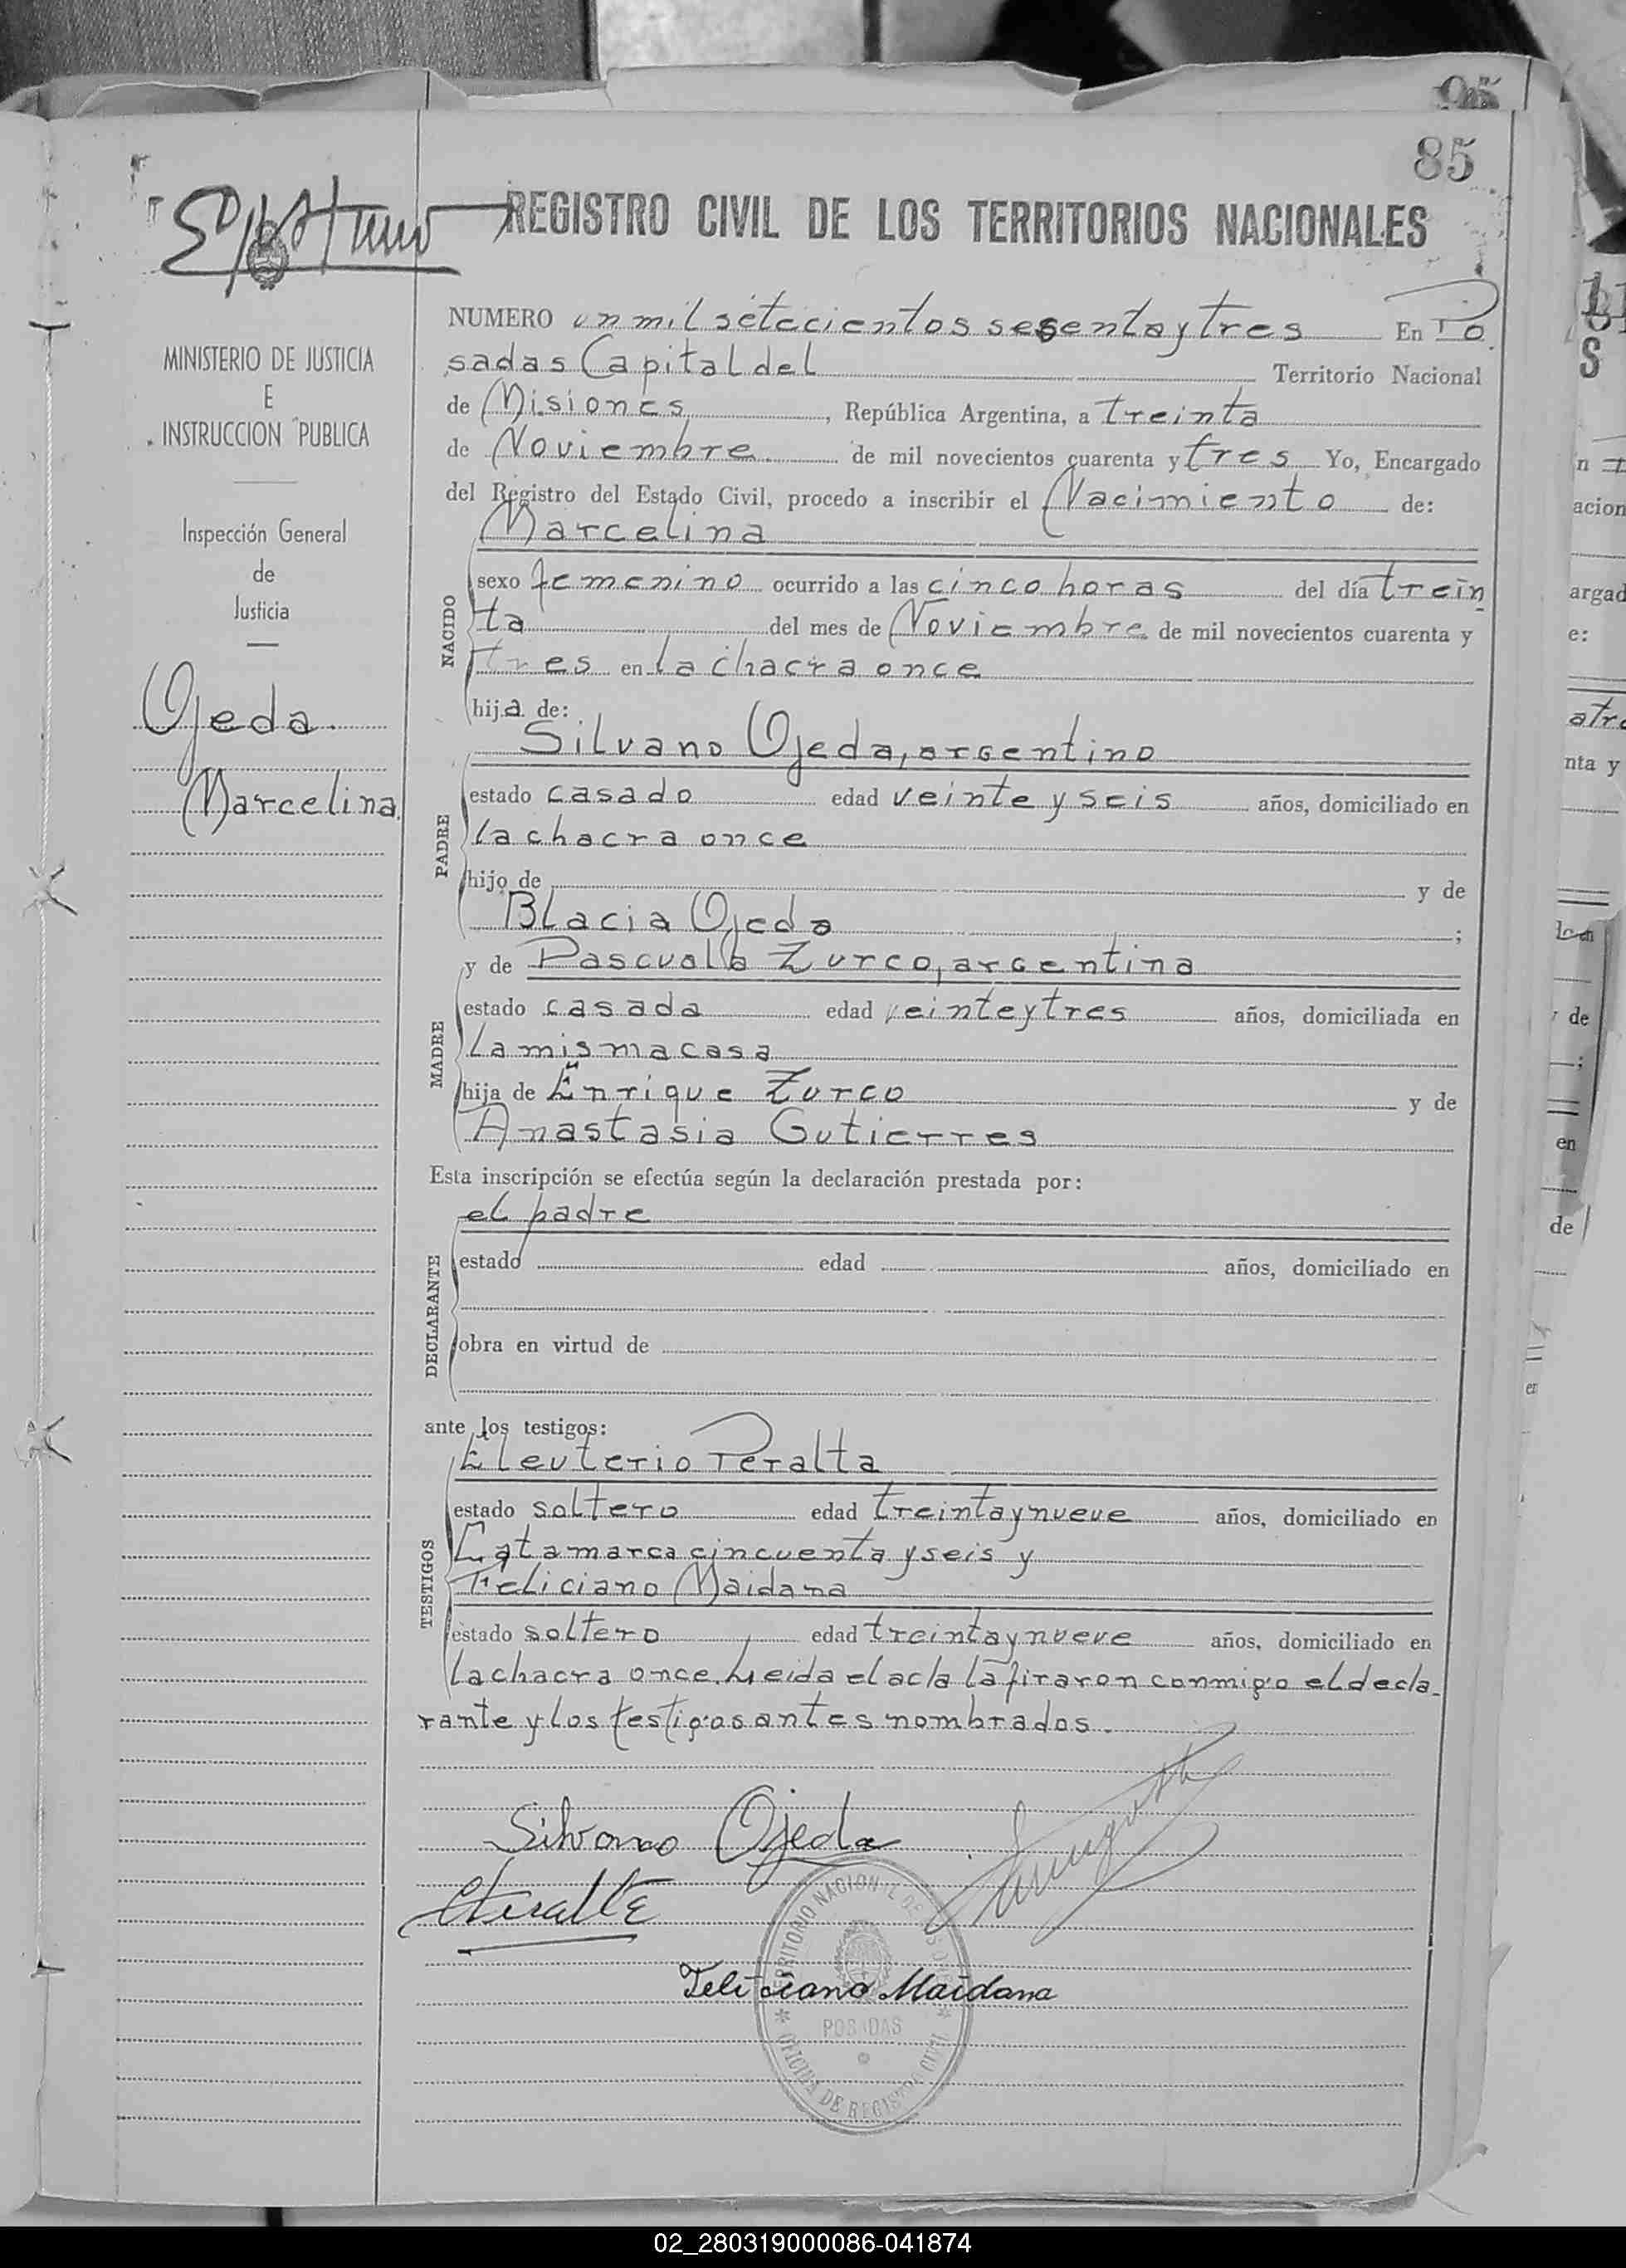 95
85
REGISTRO CIVIL DE LOS TERRITORIOS NACIONALES
MINISTERIO DE JUSTICIA
E
INSTRUCCION PUBLICA
Inspección General
de
Justicia
Ojeda
Marcelina
NUMERO un mil setecientos sesenta y tres En Po
sadas Capital del Territorio Nacional
de Misiones, República Argentina, a treinta
de Noviembre de mil novecientos cuarenta y tres Yo, Encargado
del Registro del Estado Civil, procedo a inscribir el Nacimiento de:
Marcelina
NACIDO
sexo femenino ocurrido a las cinco horas del día trein
ta del mes de Noviembre de mil novecientos cuarenta y
tres en la chacra once
hija de:
Silvano Ojeda, argentino
PADRE
estado casado edad veinte y seis años, domiciliado en
la chacra once
hijo de y de
Blacia Ojeda ;
y de Pascuala Zurco, argentina
MADRE
estado casada edad veinte y tres años, domiciliada en
la misma casa
hija de Enrique Zurco y de
Anastasia Gutierres
Esta inscripción se efectúa según la declaración prestada por:
el padre
DECLARANTE
estado edad años, domiciliado en
obra en virtud de
ante los testigos:
Eleuterio Peralta
TESTIGOS
estado soltero edad treinta y nueve años, domiciliado en
Catamarca cincuenta y seis y
Feliciano Maidana
estado soltero edad treinta y nueve años, domiciliado en
la chacra once. Leida el acta la firaron conmigo el decla-
rante y los testigos antes nombrados.
Silvano Ojeda
EPeralta
Feliciano Maidana
TERRITORIO NACIONAL DE MISIONES
POSADAS
OFICINA DE REGISTRO CIVIL
02_280319000086-041874